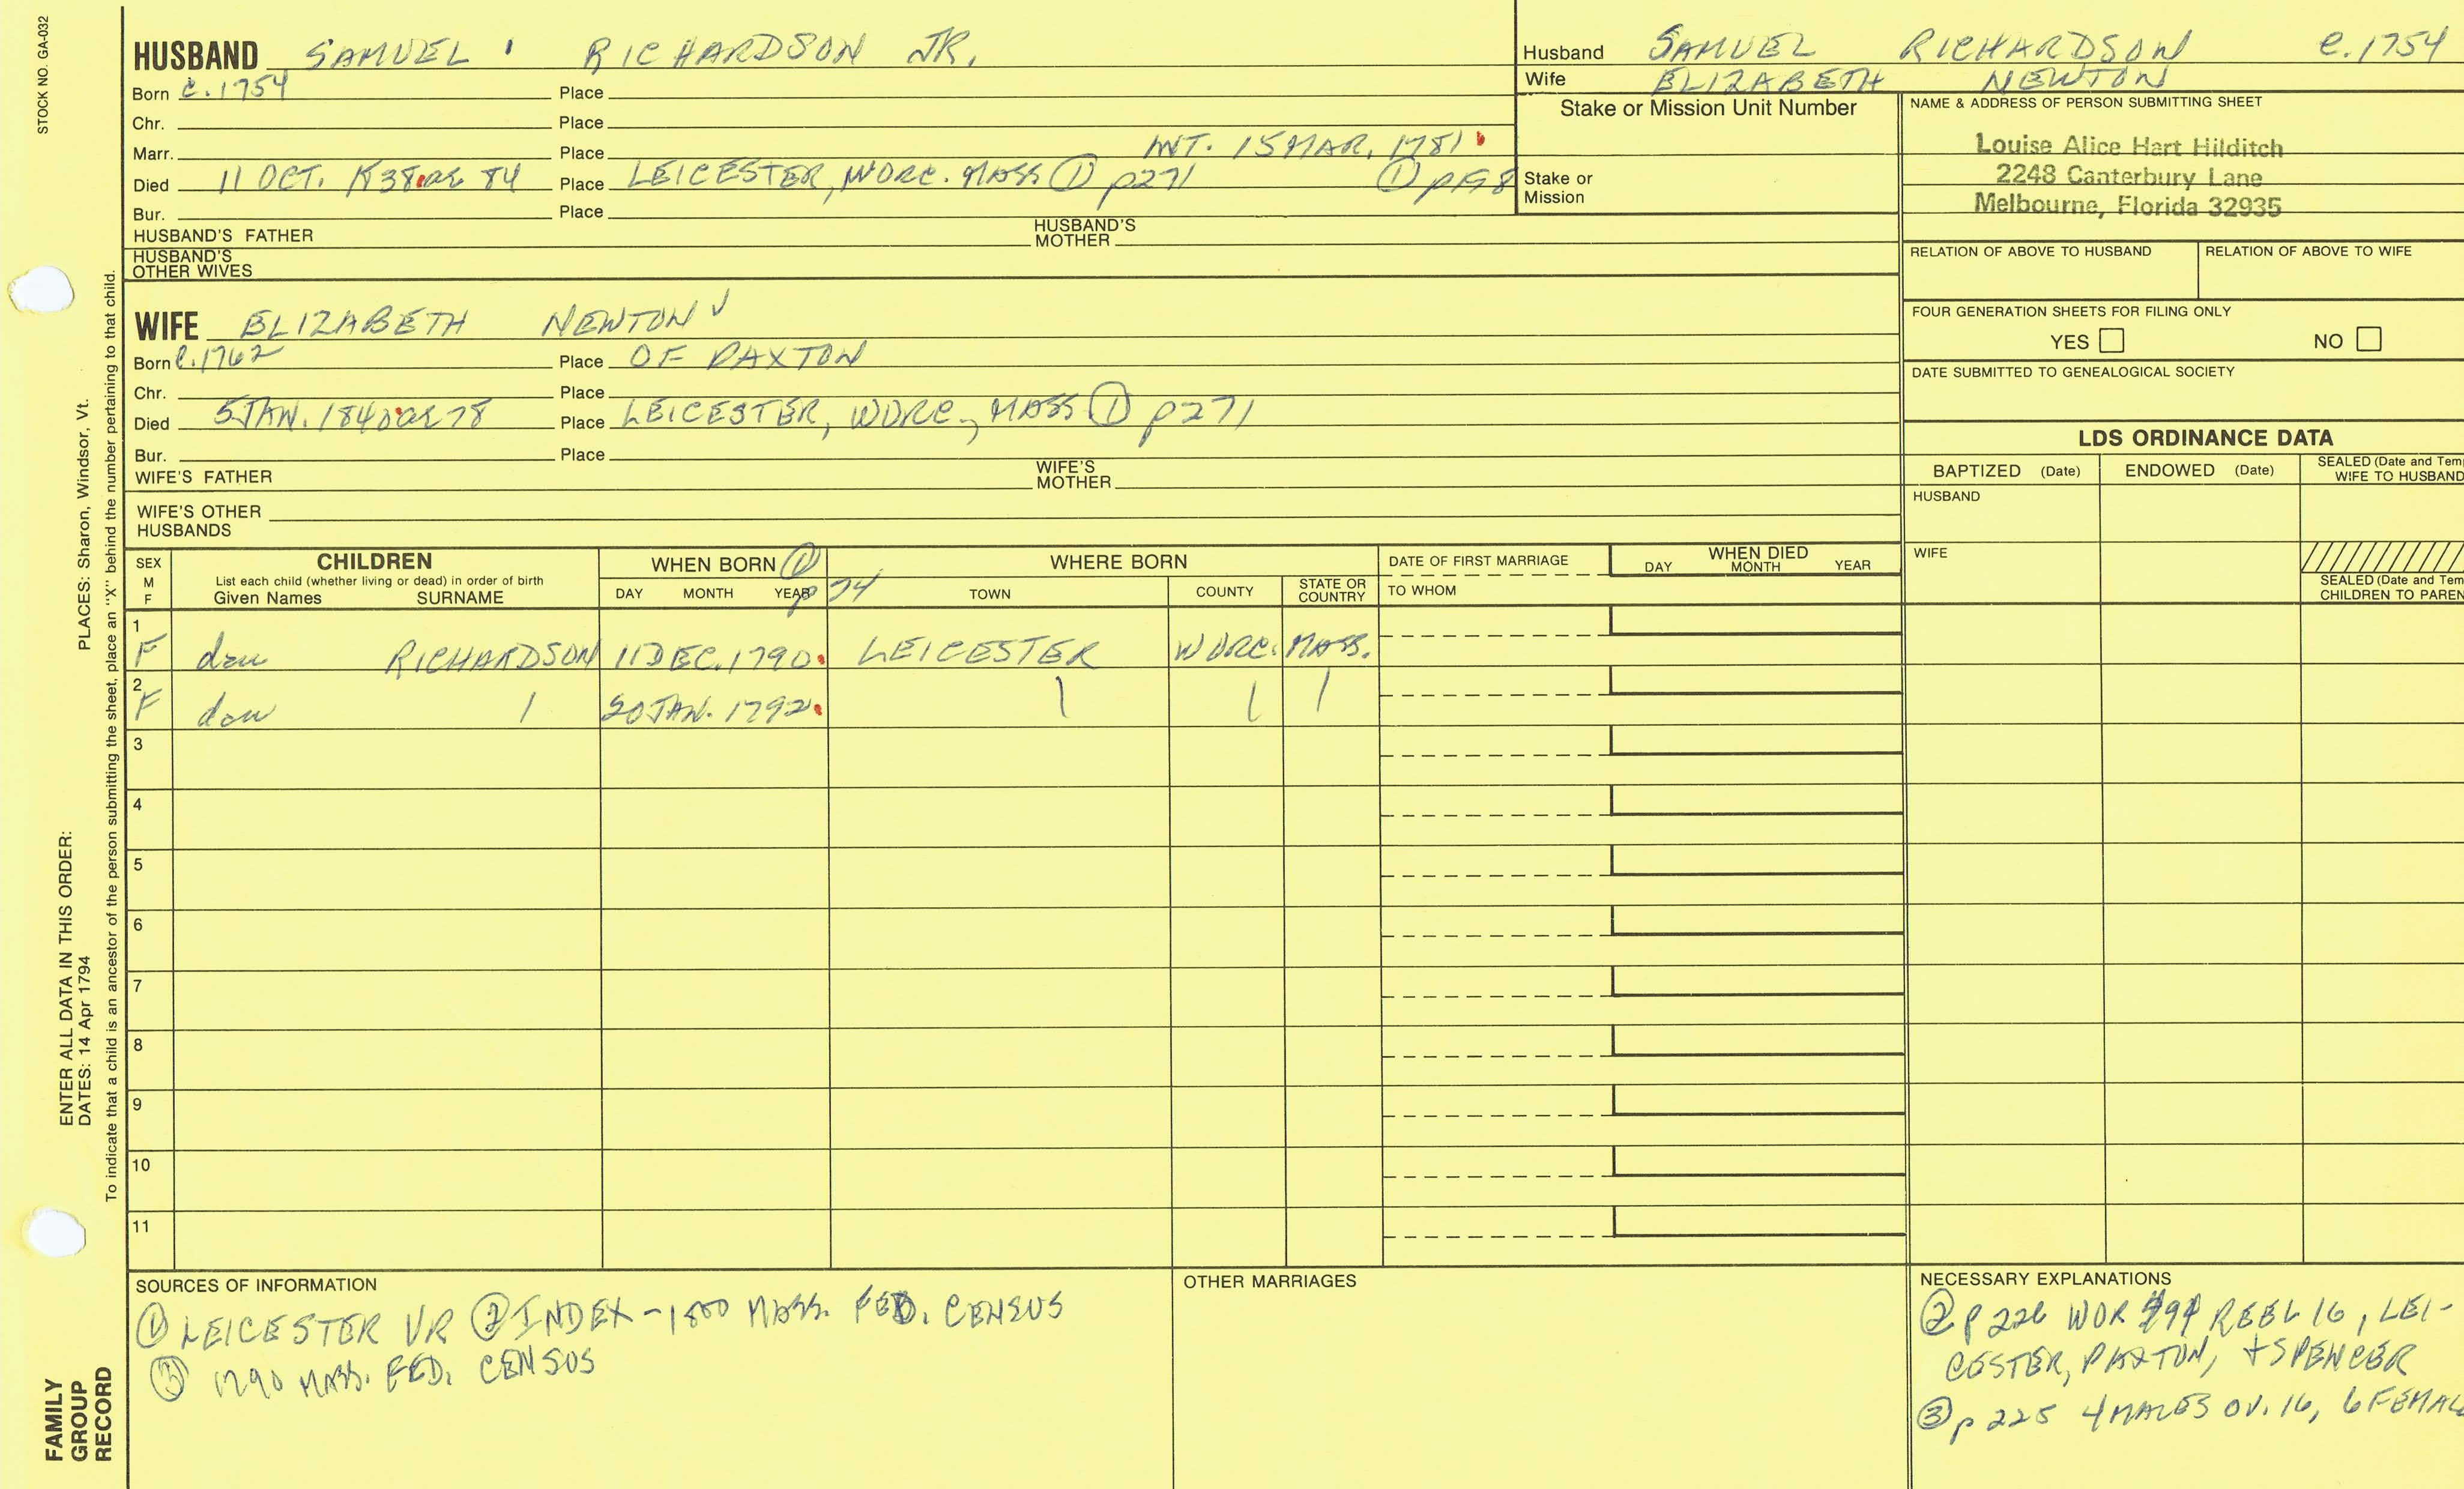 STOCK NO. GA-032
HUSBAND SAMUEL RICHARDSON JR.
Born c.1754 Place
Chr. Place
Marr. Place INT. 15 MAR. 1781
Died 11 OCT. 1838 ae 84 Place LEICESTER, WORC. MASS ① p271 ① p198
Bur. Place
HUSBAND'S FATHER HUSBAND'S MOTHER
HUSBAND'S OTHER WIVES
WIFE ELIZABETH NEWTON
Born c.1762 Place OF PAXTON
Chr. Place
Died 5 JAN. 1840 ae 78 Place LEICESTER, WORC., MASS ① p271
Bur. Place
WIFE'S FATHER WIFE'S MOTHER
WIFE'S OTHER HUSBANDS
Husband SAMUEL RICHARDSON c.1754
Wife ELIZABETH NEWTON
Stake or Mission Unit Number
Stake or Mission
NAME & ADDRESS OF PERSON SUBMITTING SHEET
Louise Alice Hart Hilditch
2248 Canterbury Lane
Melbourne, Florida 32935
RELATION OF ABOVE TO HUSBAND RELATION OF ABOVE TO WIFE
FOUR GENERATION SHEETS FOR FILING ONLY
YES NO
DATE SUBMITTED TO GENEALOGICAL SOCIETY
LDS ORDINANCE DATA
BAPTIZED (Date) ENDOWED (Date) SEALED (Date and Tem
WIFE TO HUSBAND
HUSBAND
WIFE
SEALED (Date and Tem
CHILDREN TO PAREN
SEX M F CHILDREN WHEN BORN ① p 74 WHERE BORN DATE OF FIRST MARRIAGE WHEN DIED
List each child (whether living or dead) in order of birth
Given Names SURNAME DAY MONTH YEAR TOWN COUNTY STATE OR COUNTRY TO WHOM DAY MONTH YEAR
1 F dau RICHARDSON 11 DEC. 1790 LEICESTER WORC. MASS.
2 F dau 20 JAN. 1792
3
4
5
6
7
8
9
10
11
SOURCES OF INFORMATION
① LEICESTER VR ② INDEX - 1800 MASS. FED. CENSUS
③ 1790 MASS. FED. CENSUS
OTHER MARRIAGES
NECESSARY EXPLANATIONS
② p 226 WOR REEL 16, LEI-
CESTER, PAXTON, + SPENCER
③ p 225 4 MALES OV. 16, 6 FEMALE
PLACES: Sharon, Windsor, Vt.
ENTER ALL DATA IN THIS ORDER:
DATES: 14 Apr 1794
To indicate that a child is an ancestor of the person submitting the sheet, place an "X" behind the number pertaining to that child.
FAMILY
GROUP
RECORD